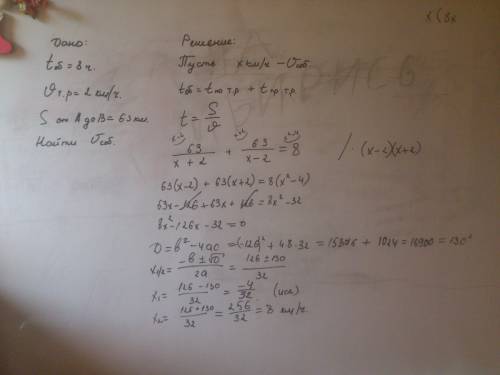 x(8x
Дано:
t об = 8 ч.
υ т.р = 2 км/ч.
S от A до B = 63 км.
Найти υ соб.
Решение:
Пусть x км/ч – υ соб.
t об = t по т.р + t пр т.р.
t = S/υ
63/(x+2) + 63/(x-2) = 8 /·(x-2)(x+2)
63(x-2) + 63(x+2) = 8(x²-4)
63x-126+63x+126 = 8x²-32
8x²-126x-32=0
D = b²-4ac = (-126)² + 4·8·32 = 15876 + 1024 = 16900 = 130²
x1/2 = (-b±√D)/2a = (126±130)/32
x₁ = (126-130)/32 = -4/32
x₂ = (126+130)/32 = 256/32 = 8 км/ч.